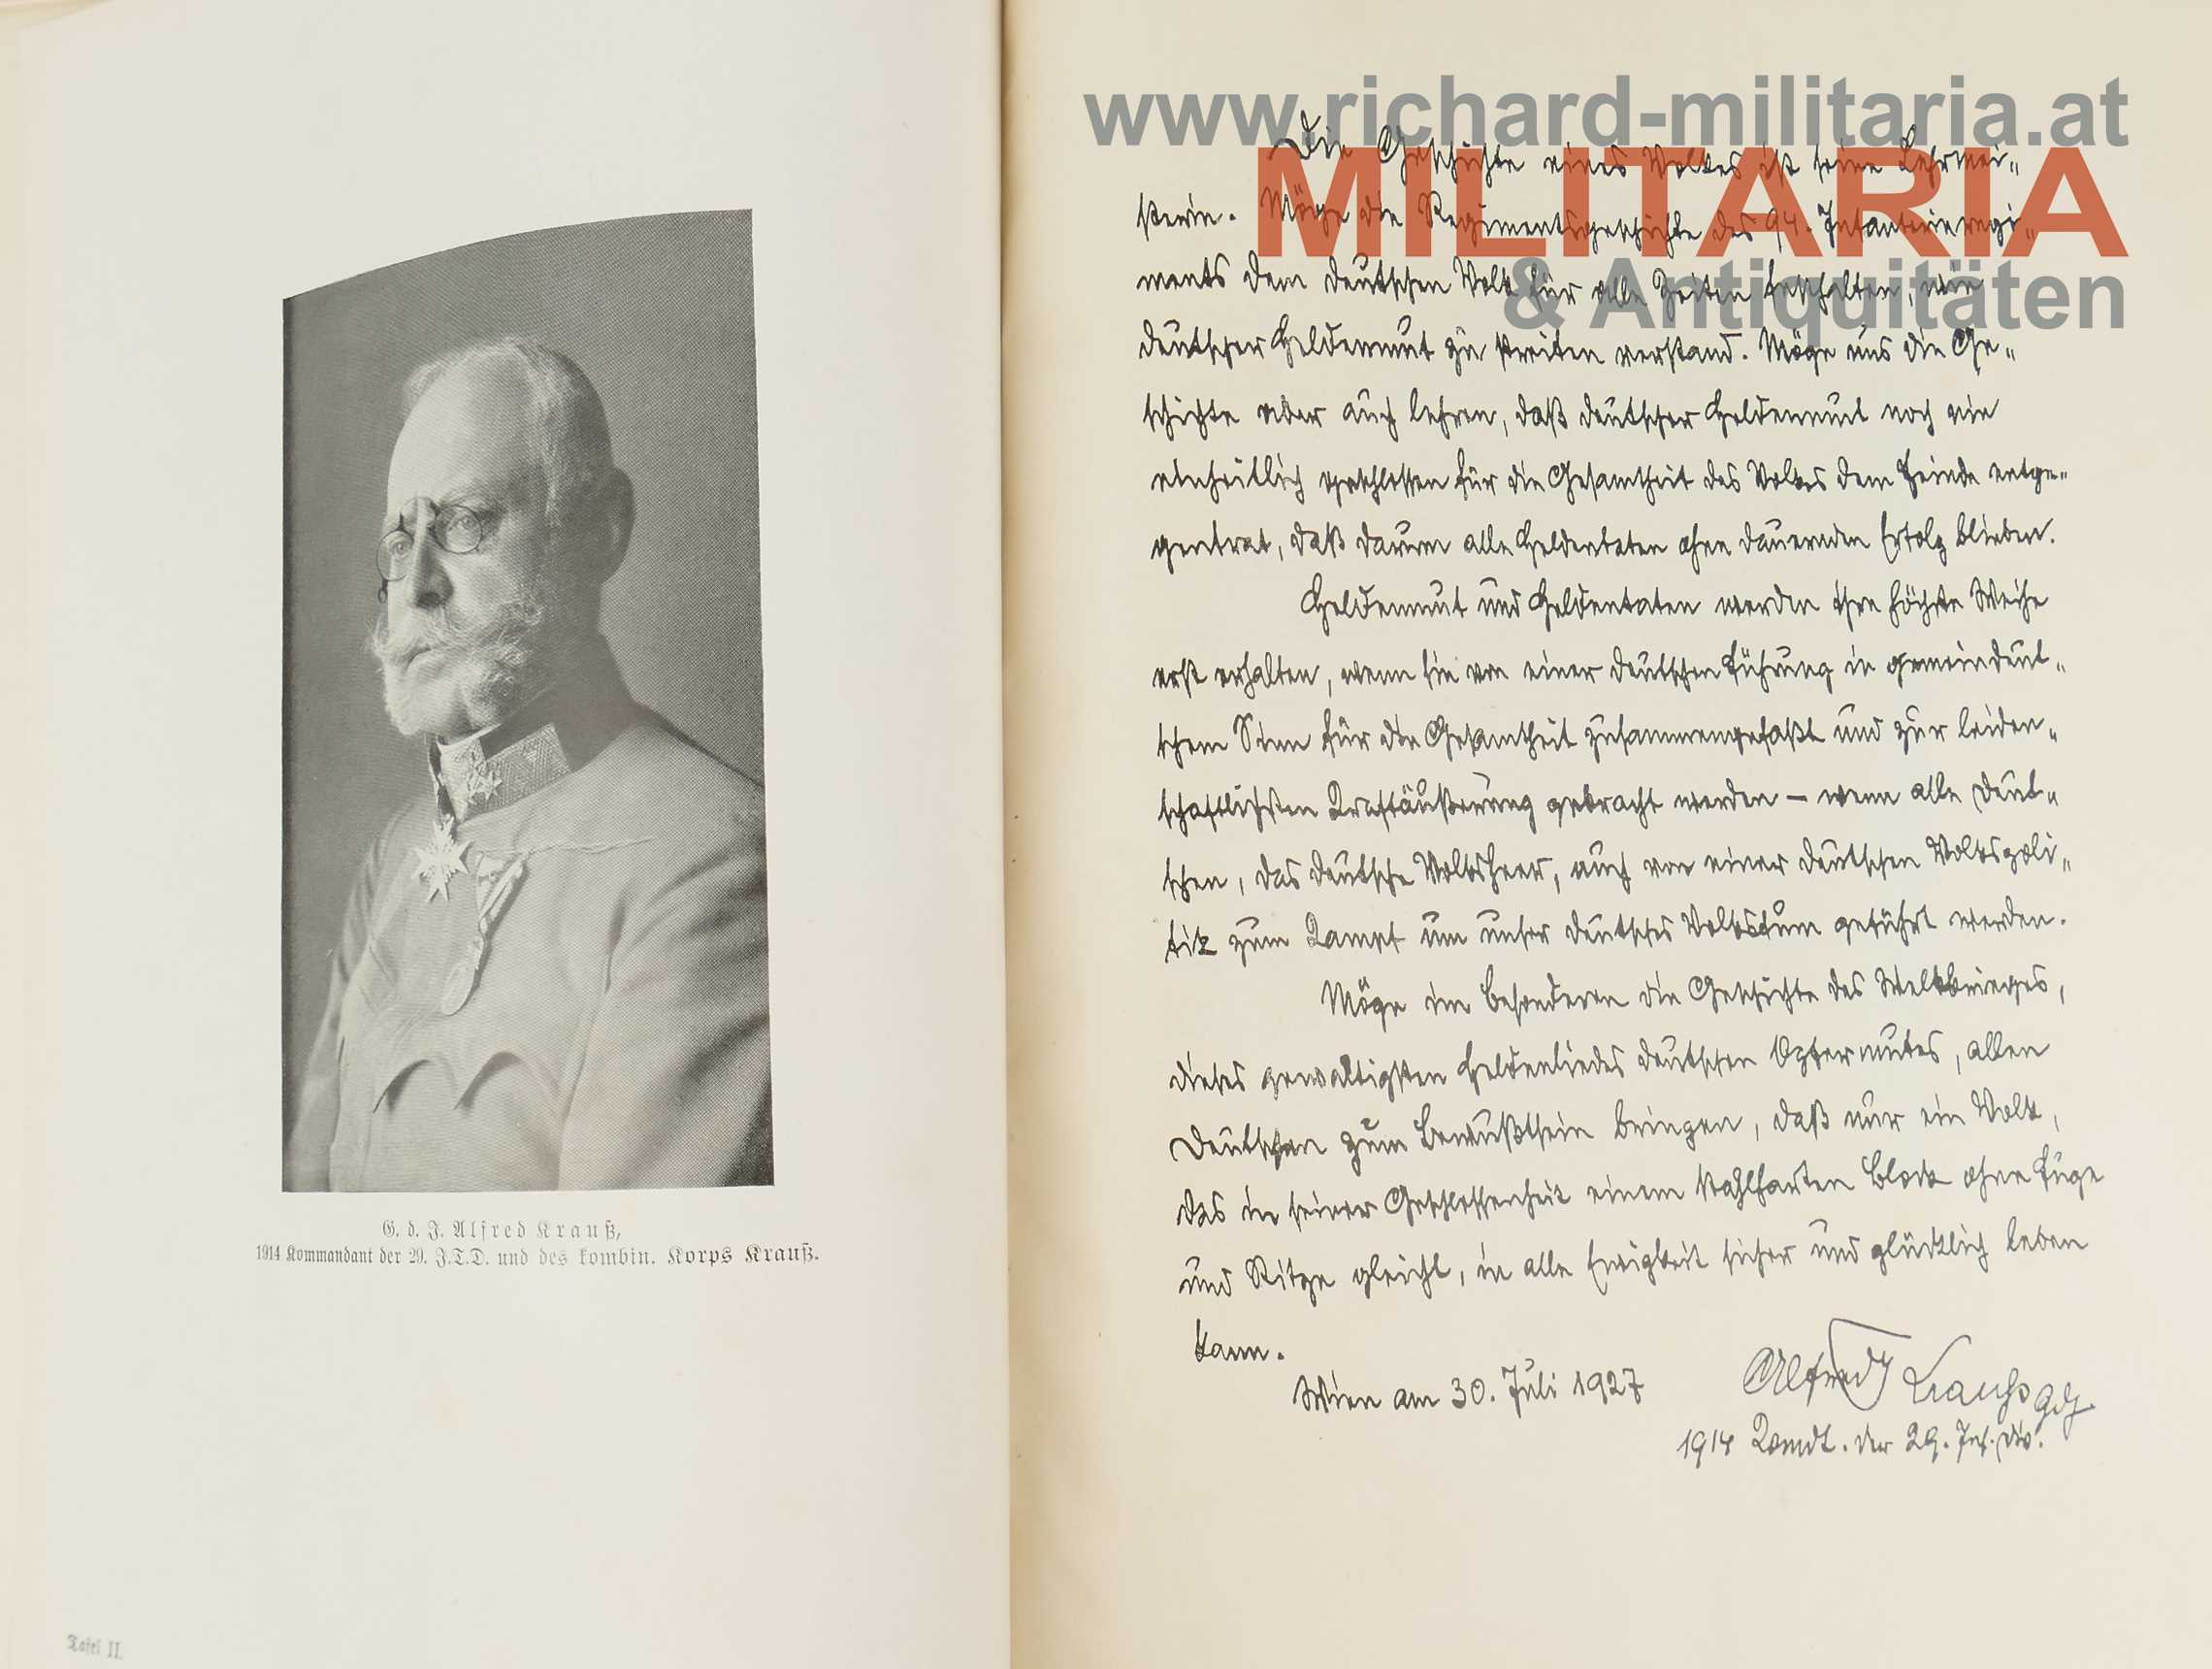 G. d. J. Alfred Krauß,
1914 Kommandant der 29. J.T.D. und des kombin. Korps Krauß.
Tafel II.
www.richard-militaria.at
MILITARIA
& Antiquitäten
Die Geschichte eines Volkes ist seine Lehrmei„
sterin. Möge die Regimentsgeschichte des 94. Infanterieregi„
ments dem deutschen Volk für alle Zeiten festhalten, wie
deutscher Heldenmut zu streiten verstand. Möge uns die Ge„
schichte aber auch lehren, daß deutscher Heldenmut noch nie
einheitlich geschlossen für die Gesamtheit des Volkes dem Feinde entge„
gentrat, daß darum alle Heldentaten ohne dauernden Erfolg blieben.
Heldenmut und Heldentaten werden ihre höchste Weihe
erst erhalten, wenn sie von einer deutschen Führung in gemeindeut„
schem Sinn für die Gesamtheit zusammengefaßt und zur leiden„
schaftlichsten Kraftäußerung gebracht werden – wenn alle Deut„
schen, das deutsche Volksheer, auch von einer deutschen Volkspoli„
tik zum Kampf um unser deutsches Volkstum geführt werden.
Möge im besonderen die Geschichte des Weltkrieges,
dieses gewaltigsten Heldenliedes deutschen Opfermutes, allen
Deutschen zum Bewußtsein bringen, daß nur ein Volk,
das in seiner Geschlossenheit einem stahlharten Block ohne Fuge
und Ritze gleicht, in alle Ewigkeit sicher und glücklich leben
kann.
Wien am 30. Juli 1927
Alfred Krauss GdJ.
1914 Komdt. der 29. Inf. Div.